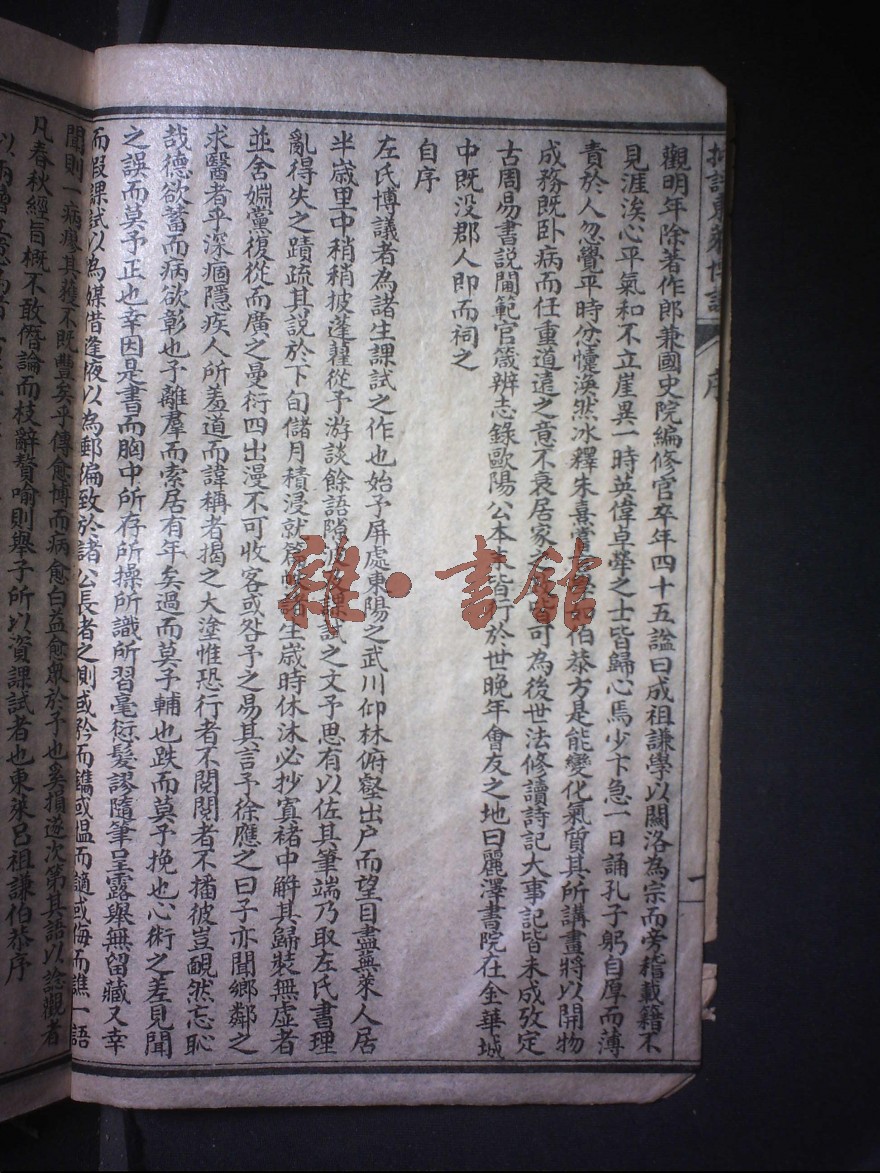 批註東萊博議
序
一
觀明年除著作郎兼國史院編修官卒年四十五謚曰成祖謙學以關洛為宗而旁稽載籍不
見涯涘心平氣和不立崖異一時英偉卓犖之士皆歸心焉少卞急一日誦孔子躬自厚而薄
責於人忽覺平時忿懥渙然冰釋朱熹嘗言學如伯恭方是能變化氣質其所講畫將以開物
成務既卧病而任重道遠之意不衰居家之政皆可為後世法修讀詩記大事記皆未成攷定
古周易書説閫範官箴辨志錄歐陽公本末皆行於世晚年會友之地曰麗澤書院在金華城
中既没郡人即而祠之
自序
左氏博議者為諸生課試之作也始予屏處東陽之武川仰林俯壑出户而望目盡蕪萊人居
半歳里中稍稍披蓬藋從予游談餘語隙波及課試之文予思有以佐其筆端乃取左氏書理
亂得失之蹟疏其説於下旬儲月積浸就篇帙諸生歳時休沐必抄寘褚中解其歸裝無虛者
並舍婣黨復從而廣之曼衍四出漫不可收客或咎予之易其言予徐應之曰子亦聞鄉鄰之
求醫者乎深痼隱疾人所羞道而諱稱者揭之大塗惟恐行者不閱閱者不播彼豈靦然忘恥
哉德欲蓄而病欲彰也予離羣而索居有年矣過而莫予輔也跌而莫予挽也心術之差見聞
之誤而莫予正也幸因是書而胸中所存所操所識所習毫愆髮謬隨筆呈露舉無留藏又幸
而假課試以為媒借逢掖以為郵徧致於諸公長者之側或矜而鐫或慍而謫或侮而譙一語
聞則一病瘳其獲不既豐矣乎傳愈博而病愈白益愈厚於予也奚損遂次第其語以諗觀者
凡春秋經旨概不敢僭論而枝辭贅喻則舉子所以資課試者也東萊呂祖謙伯恭序